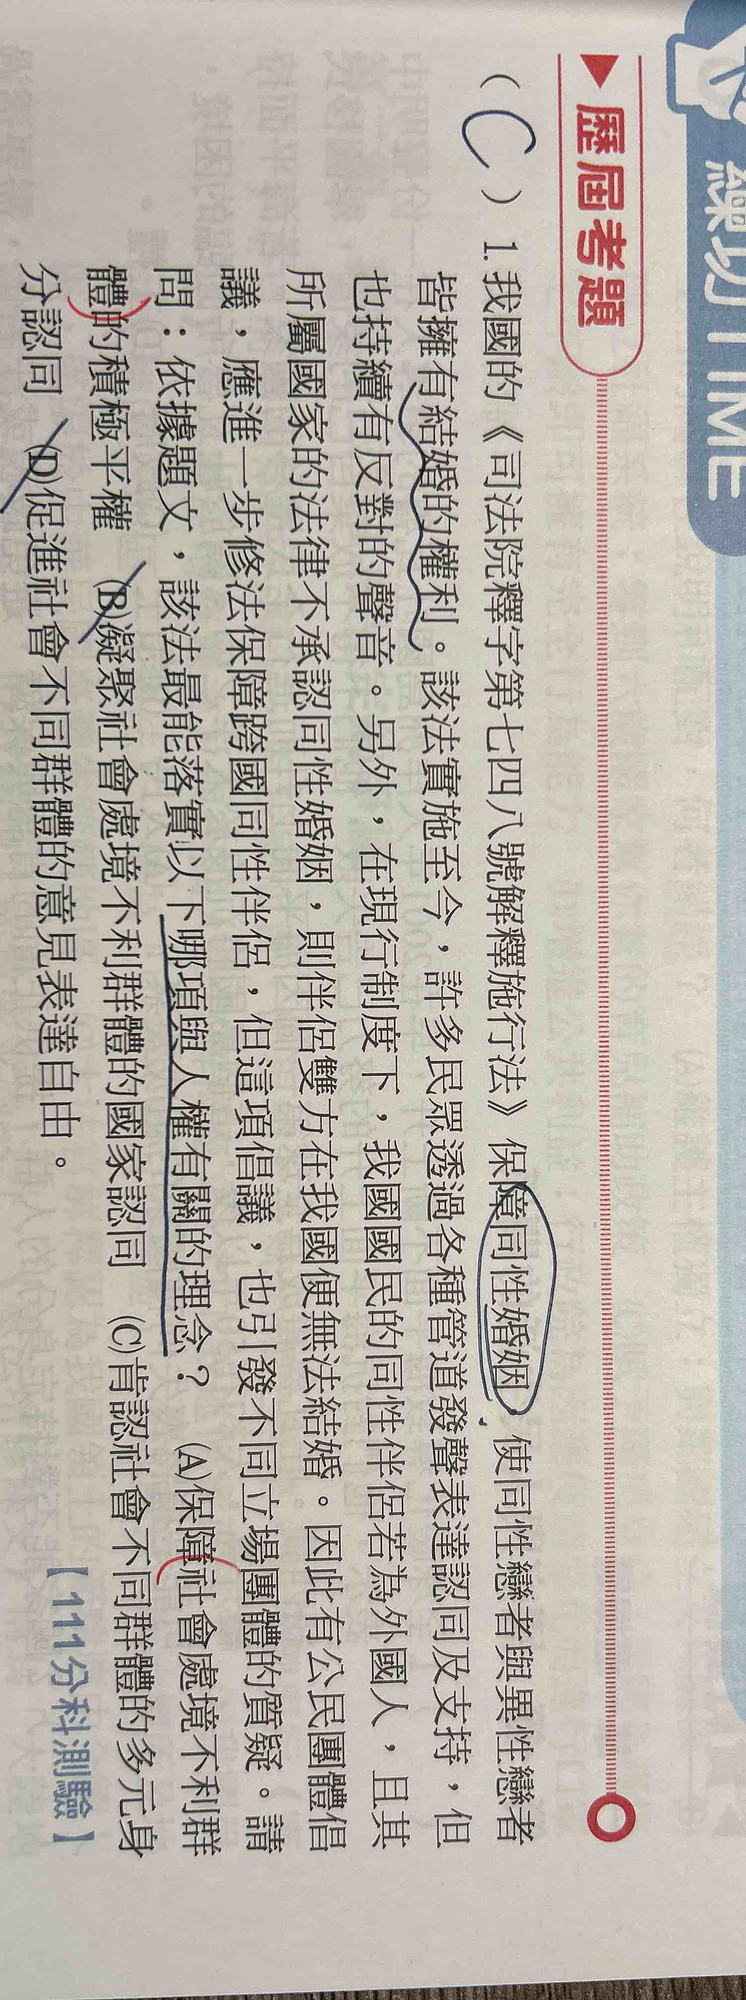 練功TIME
▶歷屆考題
（C）1.我國的《司法院釋字第七四八號解釋施行法》保障同性婚姻，使同性戀者與異性戀者
皆擁有結婚的權利。該法實施至今，許多民眾透過各種管道發聲表達認同及支持，但
也持續有反對的聲音。另外，在現行制度下，我國國民的同性伴侶若為外國人，且其
所屬國家的法律不承認同性婚姻，則伴侶雙方在我國便無法結婚。因此有公民團體倡
議，應進一步修法保障跨國同性伴侶，但這項倡議，也引發不同立場團體的質疑。請
問：依據題文，該法最能落實以下哪項與人權有關的理念？ (A)保障社會處境不利群
體的積極平權 (B)凝聚社會處境不利群體的國家認同 (C)肯認社會不同群體的多元身
分認同 (D)促進社會不同群體的意見表達自由。
【111分科測驗】